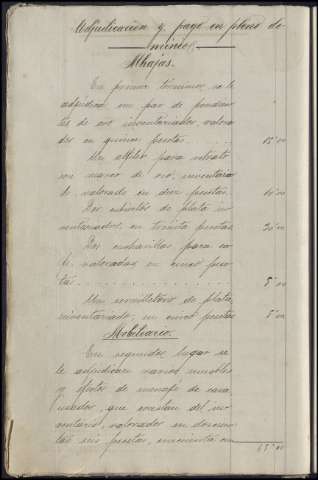 Adjudicación y pago en pleno do-
minio,
Alhajas.
En primer término, se le
adjudica un par de pendien-
tes de oro inventariados, valora-
dos en quince pesetas. 15'00
Un alfiler para retrato
con marco de oro, inventaria-
do, valorado en diez pesetas. 10'00
Dos cubiertos de plata in-
ventariados, en treinta pesetas 30'00
Dos cucharillas para ca-
fé, valoradas en cinco pese-
tas. 5'00
Un servilletero de plata,
inventariado, en cinco pesetas 5'00
Mobiliario.
En segundo lugar se
le adjudican varios muebles
y efectos de menaje de casa,
usados, que constan del in-
ventario, valorados en doscien-
tas seis pesetas, cincuenta cen-
65'00